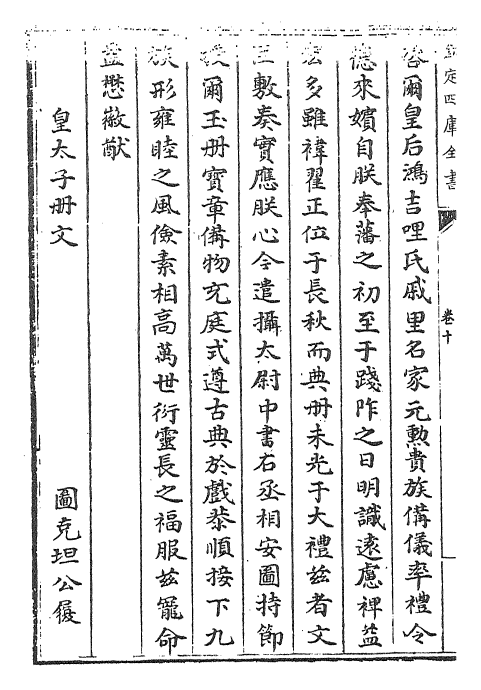 欽定四庫全書
卷十
咨爾皇后鴻吉哩氏戚里名家元勲貴族備儀率禮令
德來嬪自朕奉藩之初至于踐阼之日明識遠慮裨益
宏多雖褘翟正位于長秋而典册未光于大禮兹者文
王敷奏實應朕心今遣攝太尉中書右丞相安圖持節
授爾玉册寳章備物充庭式遵古典於戲恭順接下九
族形雍睦之風儉素相高萬世衍靈長之福服兹寵命
益懋徽猷
皇太子册文
圖克坦公履